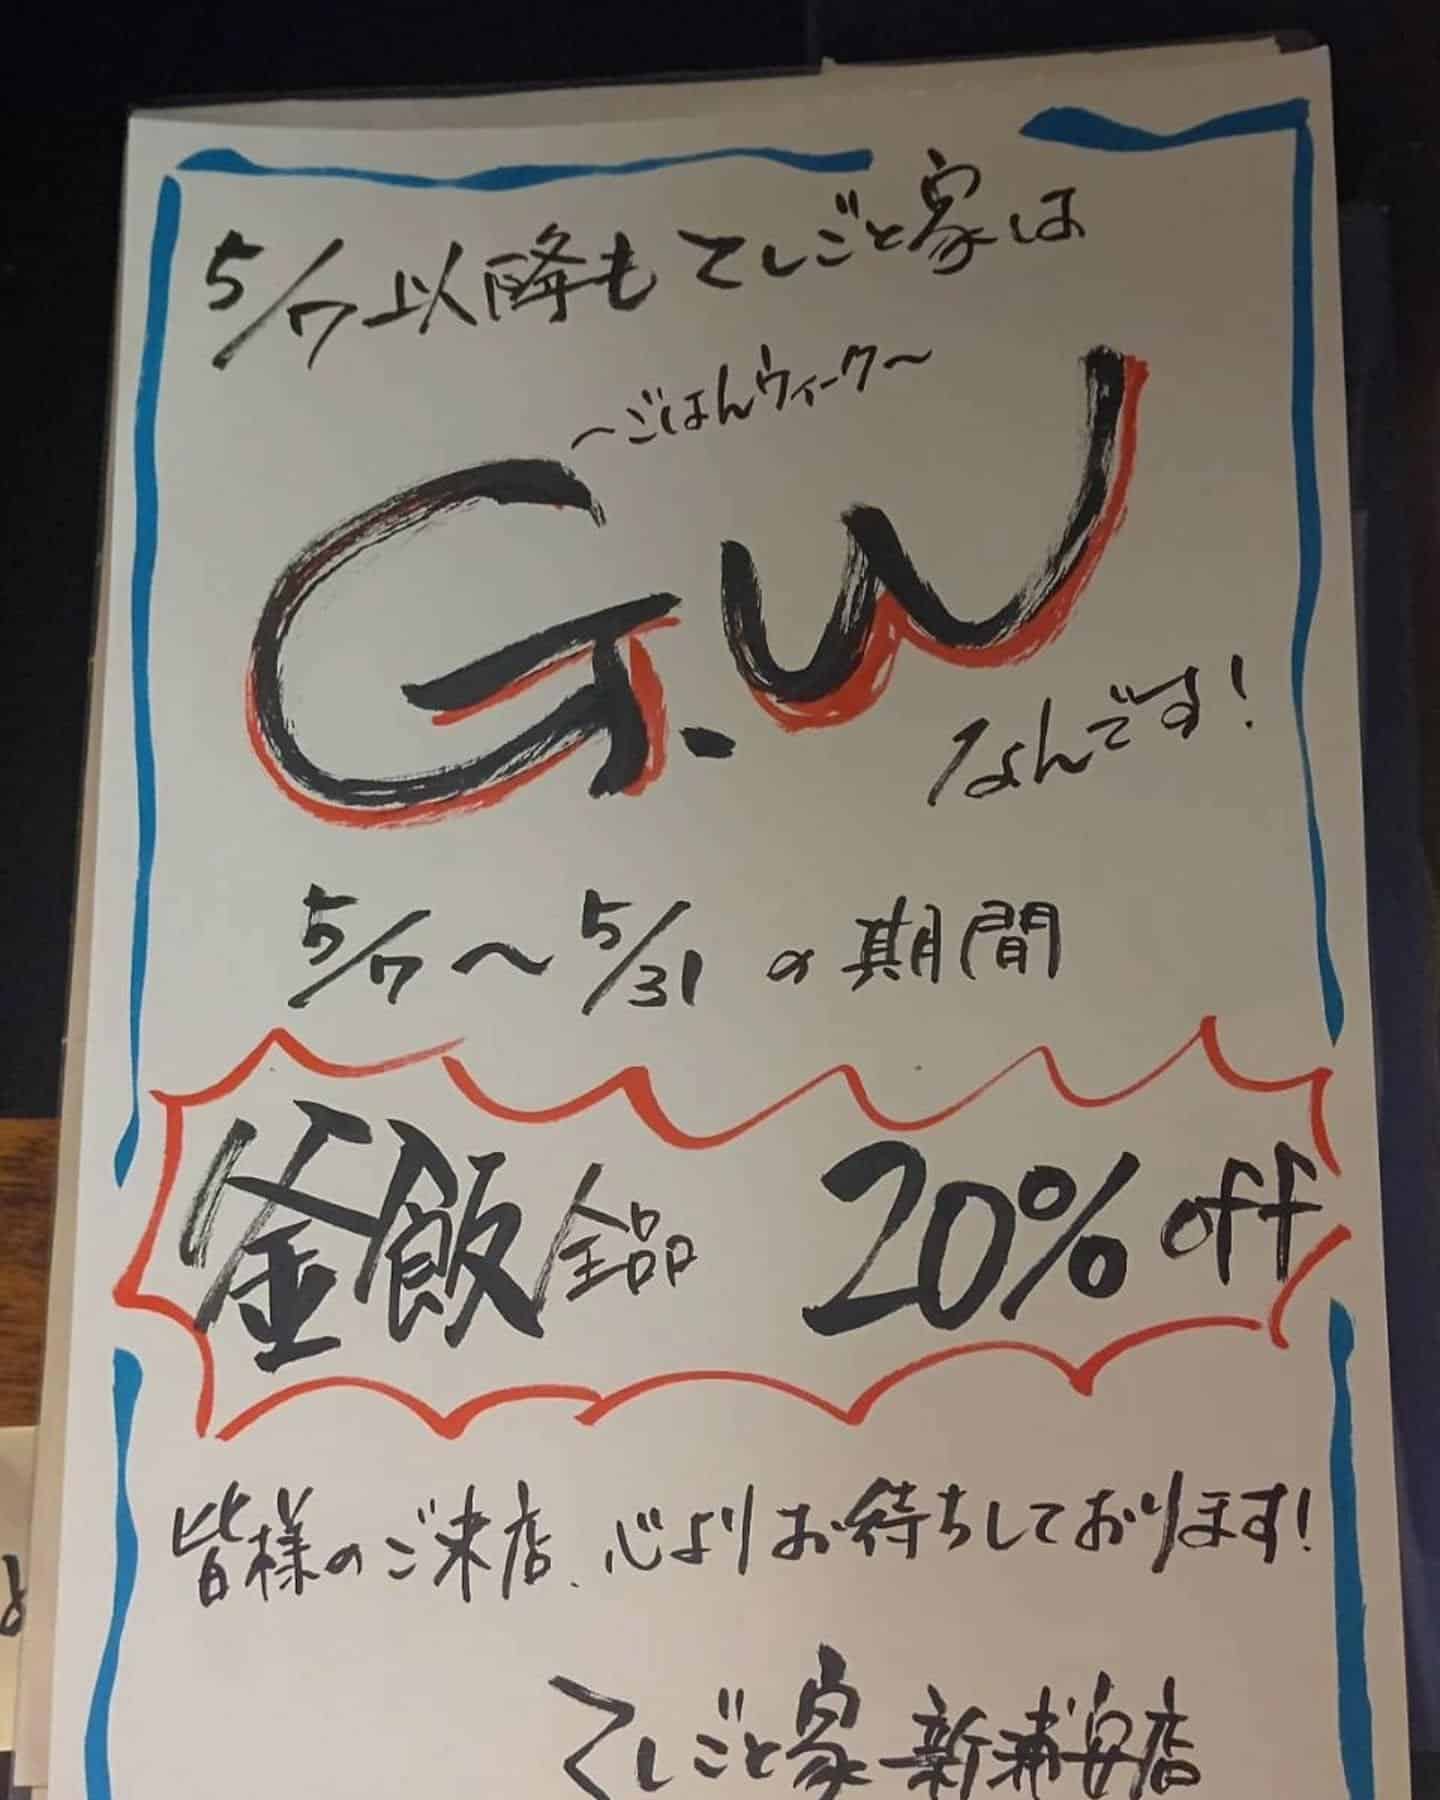 5/7以降も てしごと家は
～ごはんウィーク～
G.W
なんです!
5/7～5/31の期間
釜飯全品 20%off
皆様のご来店、心よりお待ちしております!
てしごと家 新浦安店